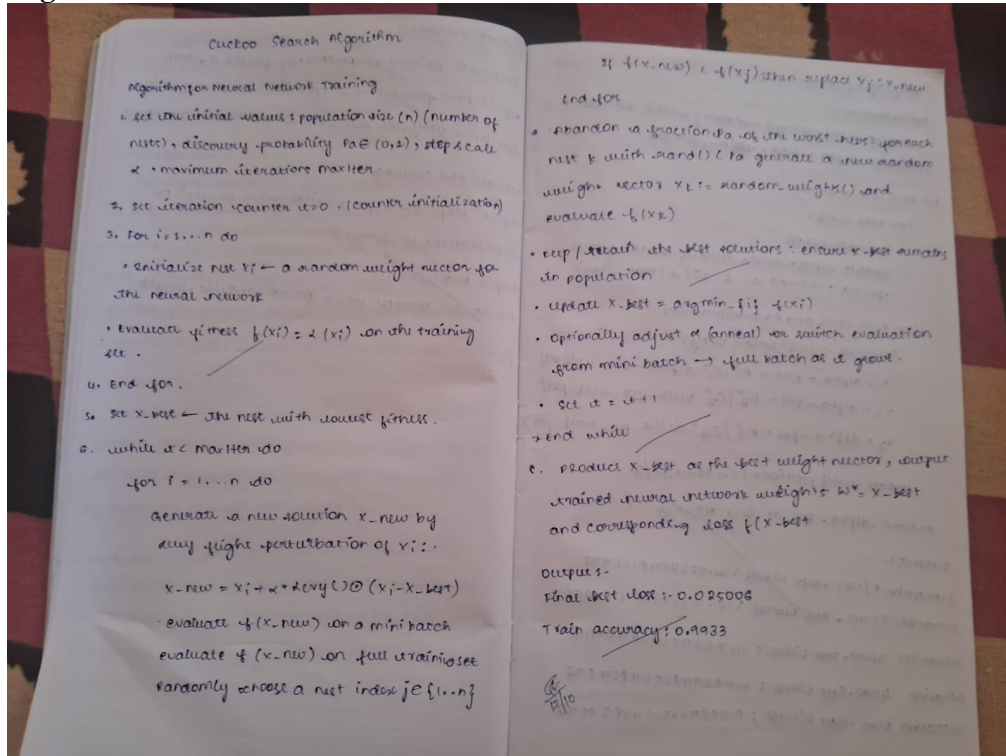 Cuckoo Search Algorithm
Algorithm for Neural Network Training
1. Set the initial values : population size (n) (number of
nests), discovery probability Pa ∈ (0,1), step scale
α , maximum iterations maxIter.
2. Set iteration counter t=0 . (counter initialization)
3. For i=1...n do
• Initialize nest Xi ← a random weight vector for
the neural network
• Evaluate fitness f(xi) = L (xi) on the training
set .
4. End for.
5. Set X_best ← the nest with lowest fitness .
6. while t < maxIter do
for i = 1...n do
Generate a new solution x_new by
levy flight perturbation of xi :
x_new = xi + α * Levy () ⊙ (xi - X_best)
evaluate f(x_new) on a mini batch
evaluate f (x_new) on full training set
Randomly choose a nest index j ∈ {1..n}
If f(x_new) < f(xj) then replace xj : x_new
End for
• Abandon a fraction Pa of the worst nests : for each
nest k with rand() < Pa generate a new random
weight vector xk := random_weights() and
evaluate f(xk)
• keep / retain the best solutions : ensure x_best remains
in population
• update x_best = argmin_{i} f(xi)
• optionally adjust α (anneal) or switch evaluation
from mini batch → full batch as t grows.
• set t = t+1
7 End while
8. Produce x_best as the best weight vector, output
trained neural network weights W* = x_best
and corresponding loss f(x_best
Output :-
Final best loss :- 0.025006
Train accuracy : 0.9933
17/10